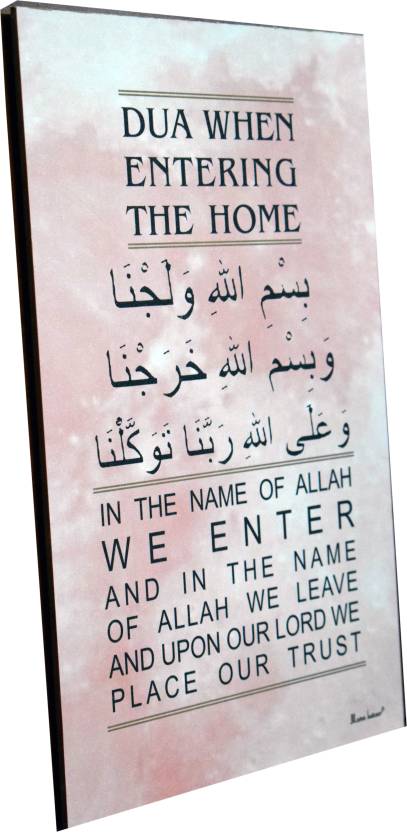 DUA WHEN
ENTERING
THE HOME
بِسْمِ اللهِ وَلَجْنَا
وَبِسْمِ اللهِ خَرَجْنَا
وَعَلَى اللهِ رَبَّنَا تَوَكَّلْنَا
IN THE NAME OF ALLAH
WE ENTER
AND IN THE NAME
OF ALLAH WE LEAVE
AND UPON OUR LORD WE
PLACE OUR TRUST